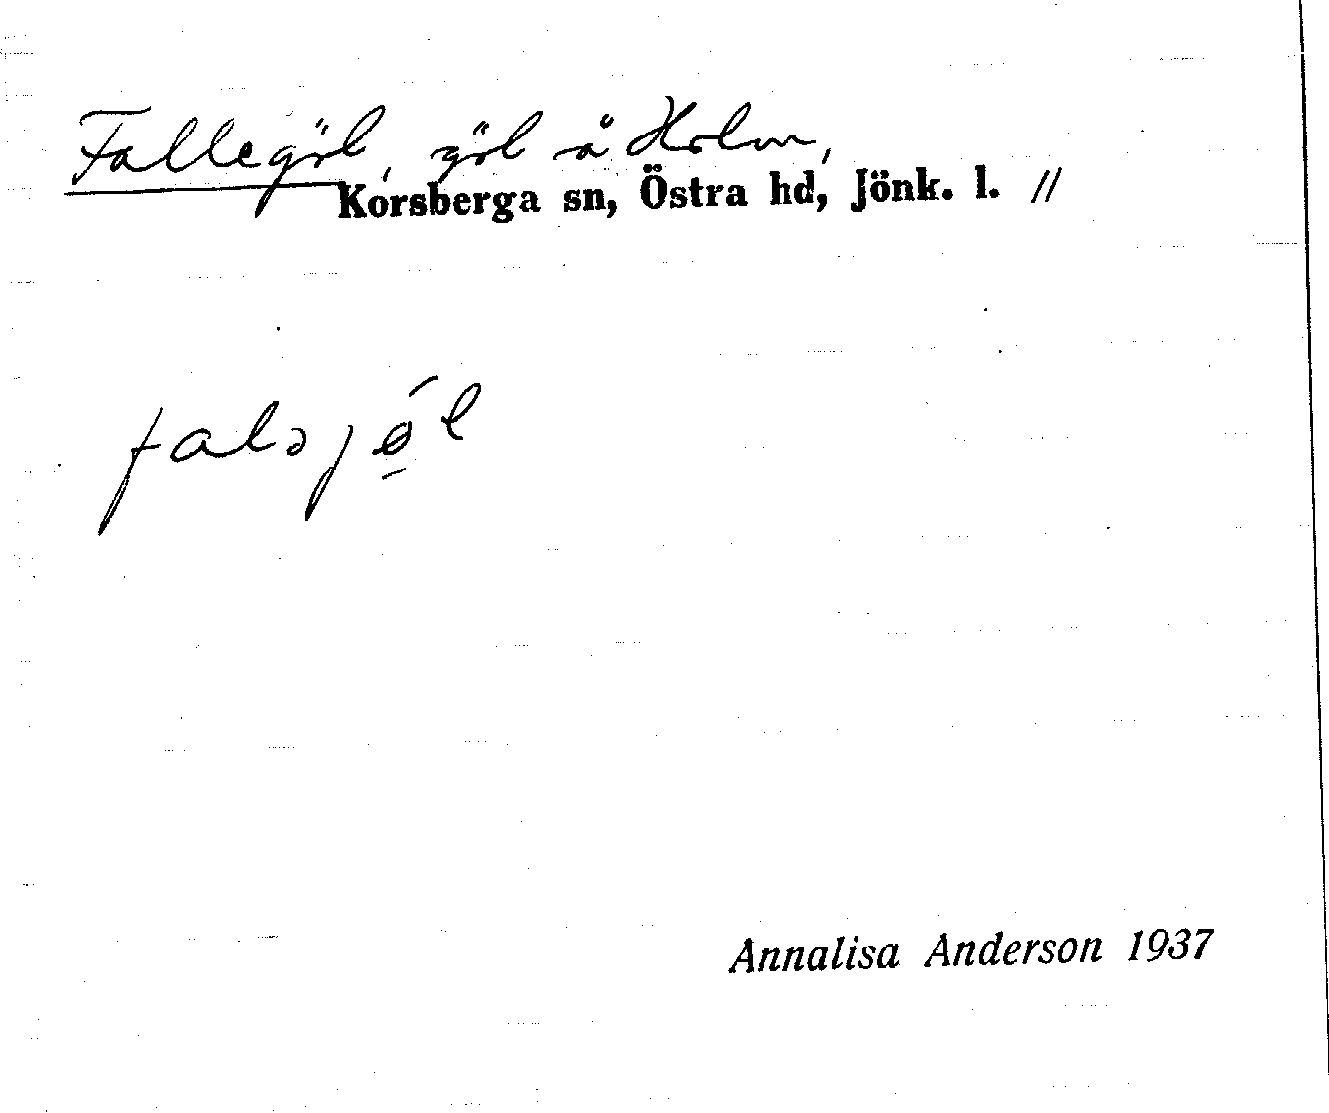 Fallegöl, göl å Holm,
Korsberga sn, Östra hd, Jönk. l. //
faləjǿ̠l
Annalisa Anderson 1937